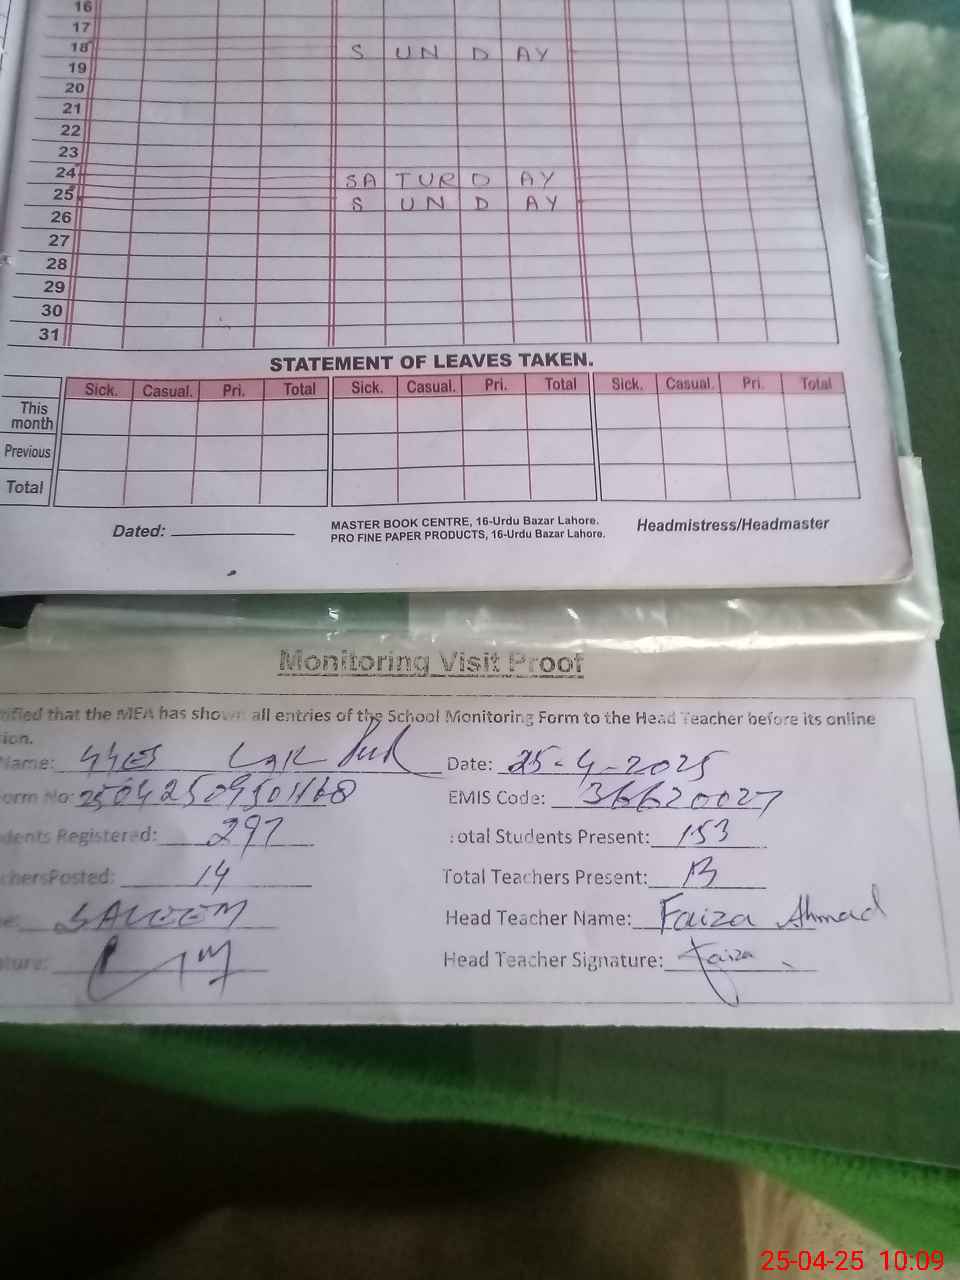 16
17
18 S UN D AY
19
20
21
22
23
24 SA TUR D AY
25 S UN D AY
26
27
28
29
30
31
STATEMENT OF LEAVES TAKEN.
Sick. Casual. Pri. Total Sick. Casual. Pri. Total Sick. Casual. Pri. Total
This month
Previous
Total
Dated: MASTER BOOK CENTRE, 16-Urdu Bazar Lahore. Headmistress/Headmaster
PRO FINE PAPER PRODUCTS, 16-Urdu Bazar Lahore.
Monitoring Visit Proof
that the MEA has shown all entries of the School Monitoring Form to the Head Teacher before its online
Name: Date: 25-4-2025
Form No: EMIS Code: 36620027
Registered: 297 Total Students Present: 153
Posted: 14 Total Teachers Present: 13
SALEEM Head Teacher Name: Faiza Ahmad
Head Teacher Signature: Faiza
25-04-25 10:09